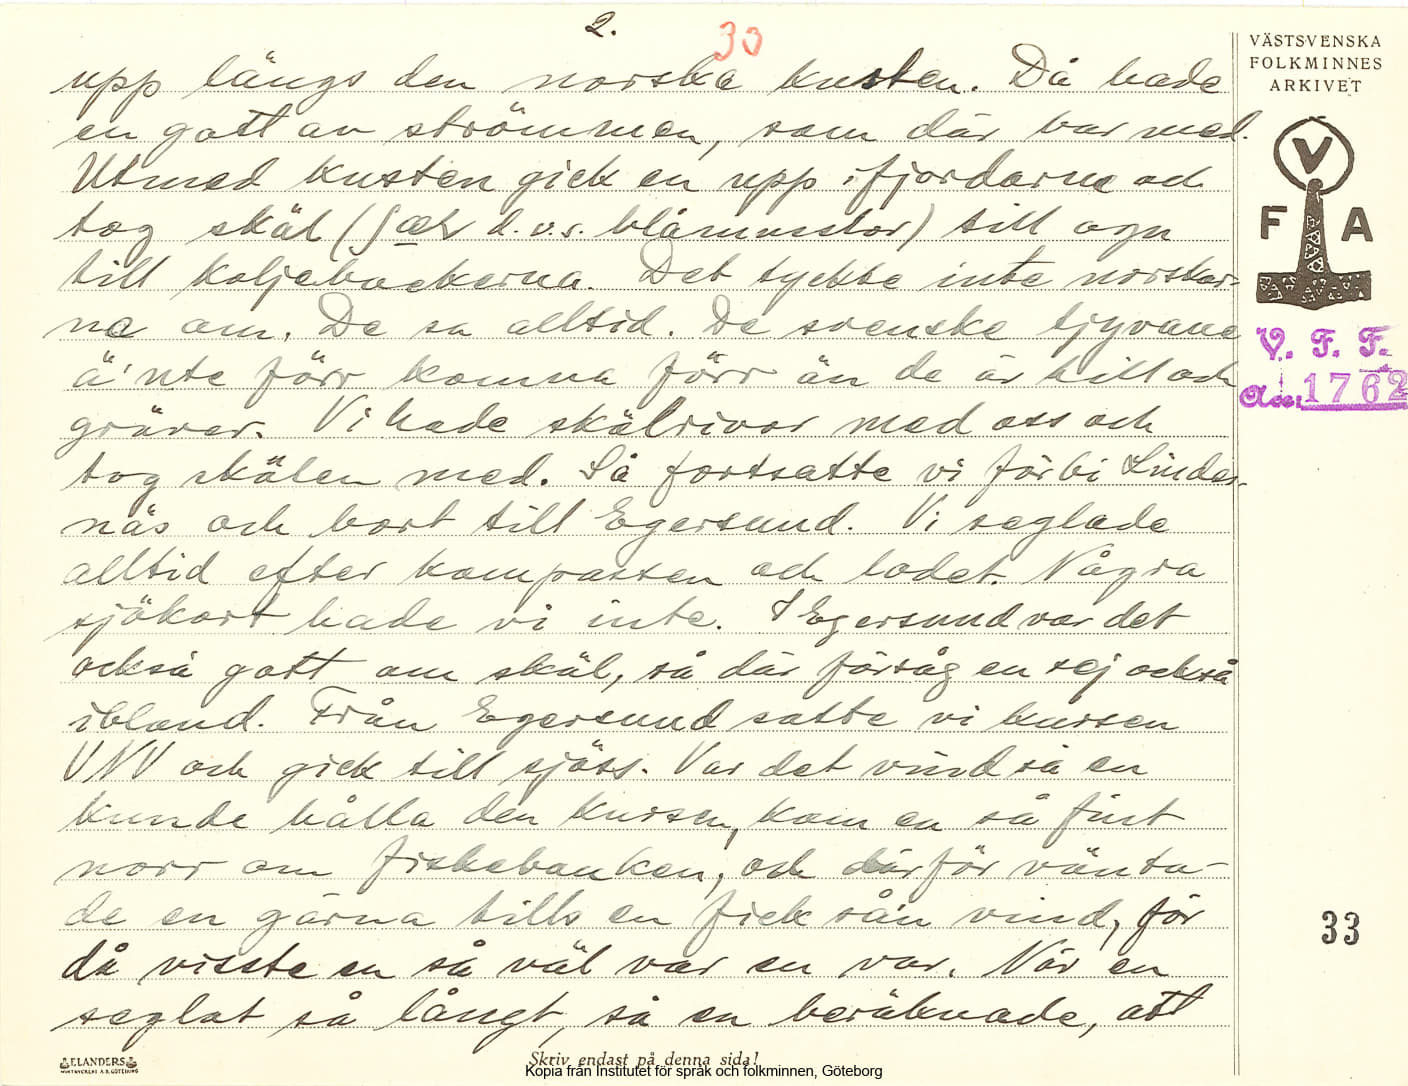 2.
33
VÄSTSVENSKA
FOLKMINNES
ARKIVET
upp längs den norska kusten. Då hade
en gott av strömmen, som där var med.
Utmed kusten gick en upp i fjordarna och
tog skäl (ʃæl d.v.s. blåmusslor) till agn
till koljebackorna. Det tyckte inte norskar-
na om. De sa alltid. De svenske tjyvane
ä'nte förr komna förr än de är till och
gräver. Vi hade skälrivor med oss och
tog skälen med. Så fortsatte vi förbi Lindes-
näs och bort till Egersund. Vi seglade
alltid efter kompassen och lodet. Några
sjökort hade vi inte. I Egersund var det
också gott om skäl, så där försåg en sej också
ibland. Från Egersund satte vi kursen
VNV och gick till sjöss. Var det vind så en
kunde hålla den kursen, kom en så fint
norr om fiskebanken, och därför vänta-
de en gärna tills en fick sån vind, för
då visste en så väl var en var. När en
seglat så långt, så en beräknade, att
V
F A
V. F. F.
Acc: 1762
33
ELANDERS
BOKTRYCKERI A.B. GÖTEBORG
Skriv endast på denna sida!
Kopia från Institutet för språk och folkminnen, Göteborg